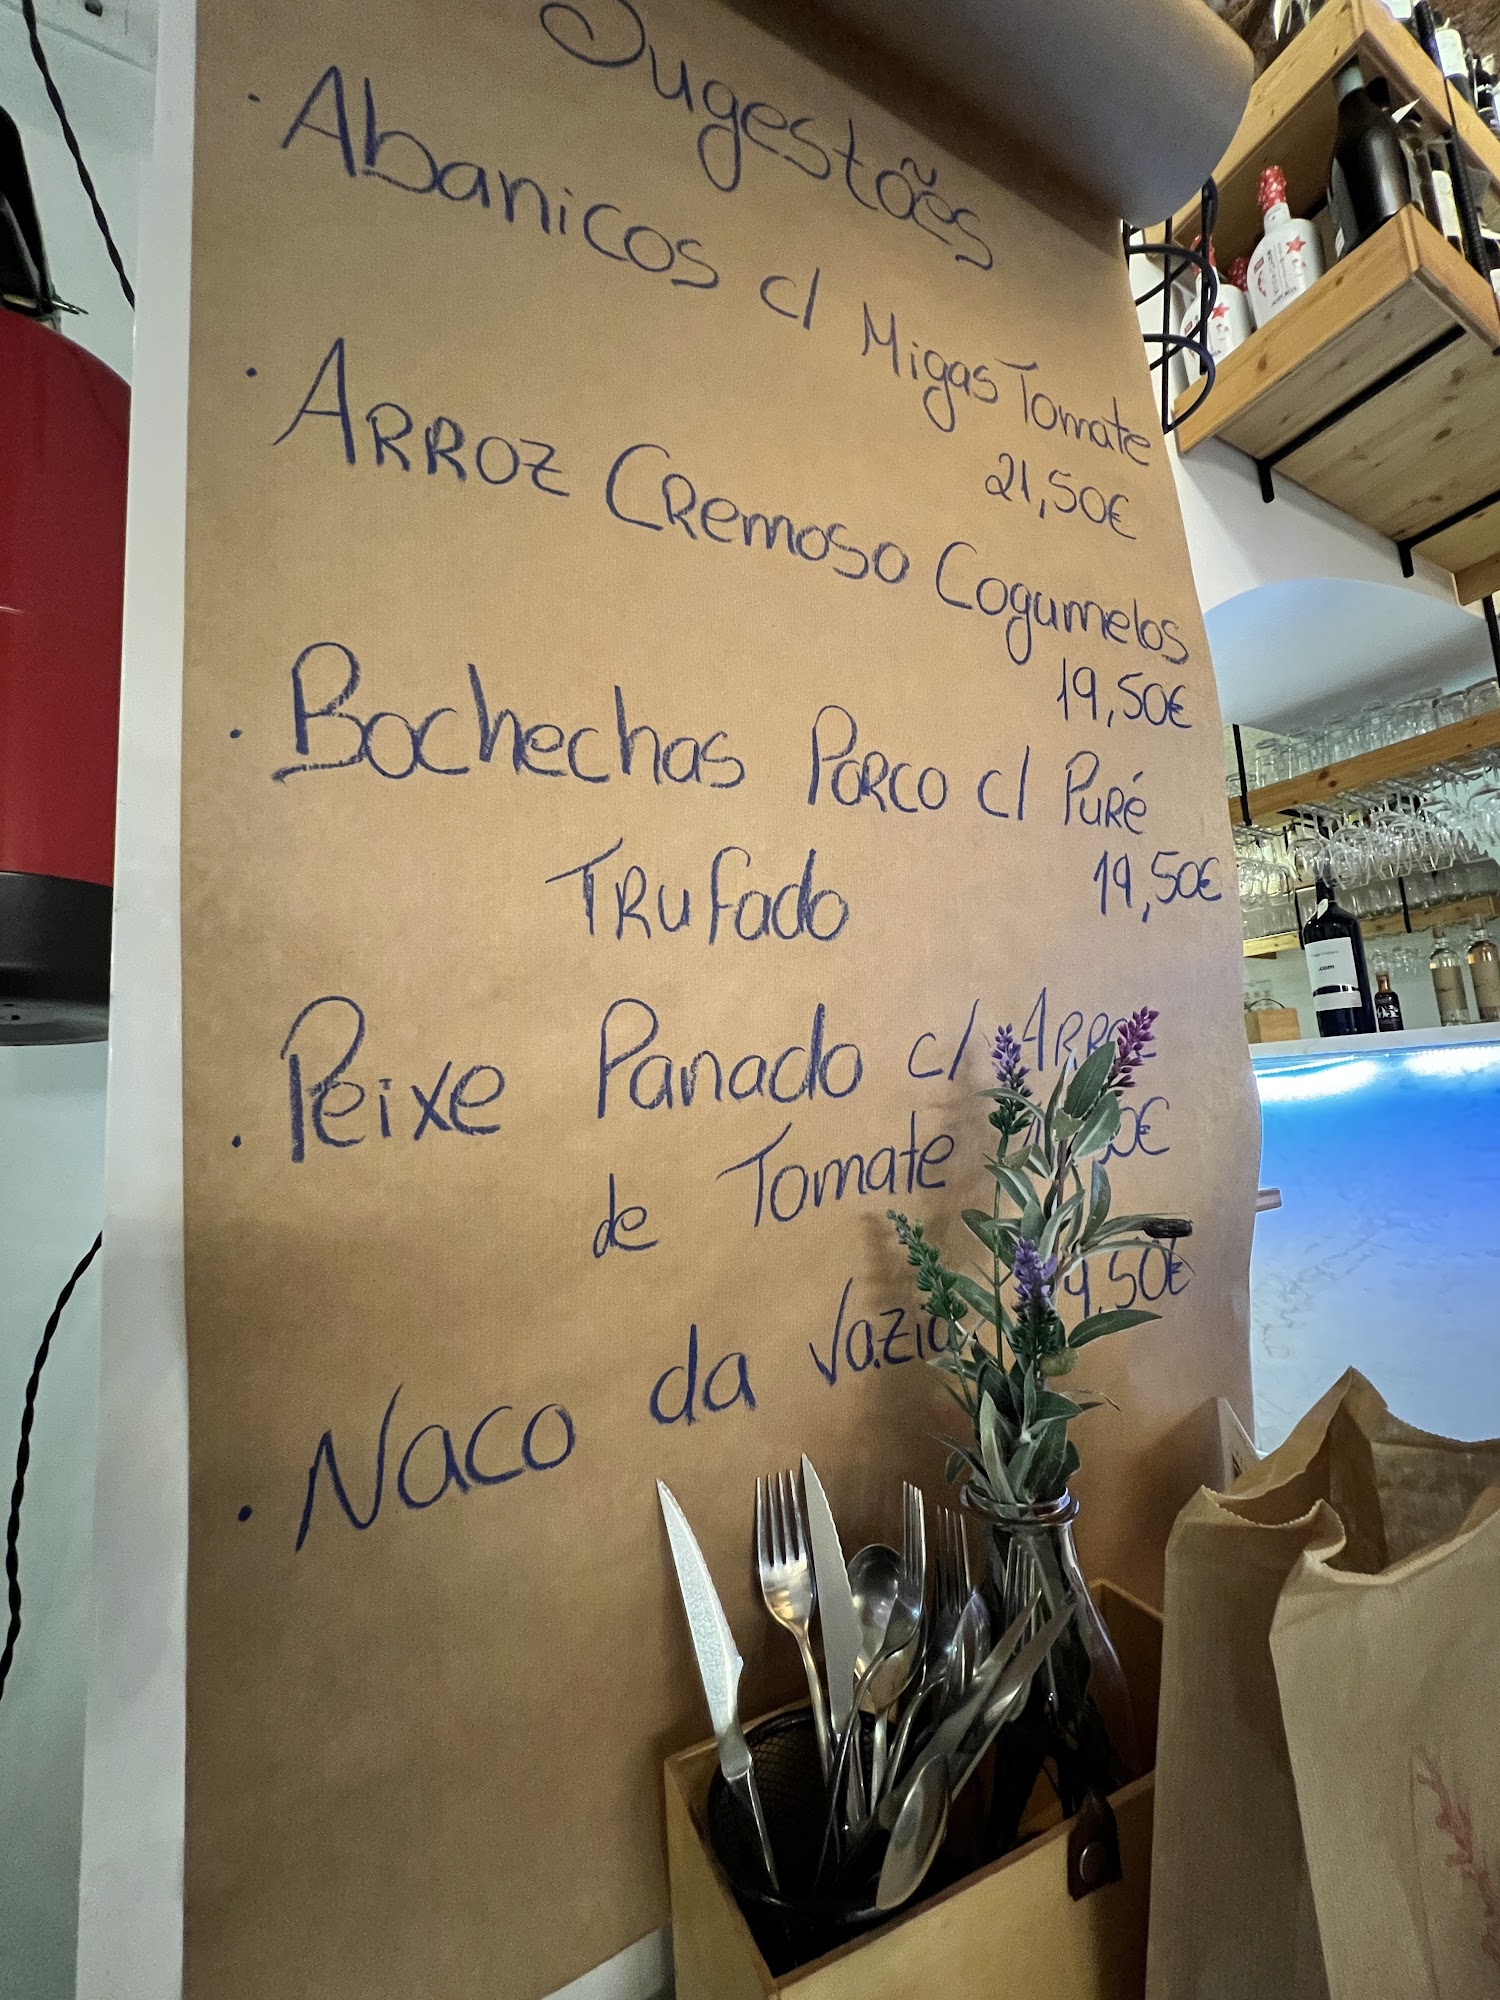 Sugestões
· Abanicos c/ Migas Tomate
21,50€
· Arroz Cremoso Cogumelos
19,50€
· Bochechas Porco c/ Puré
Trufado 19,50€
· Peixe Panado c/ Arroz
de Tomate
· Naco da Vazia
.com